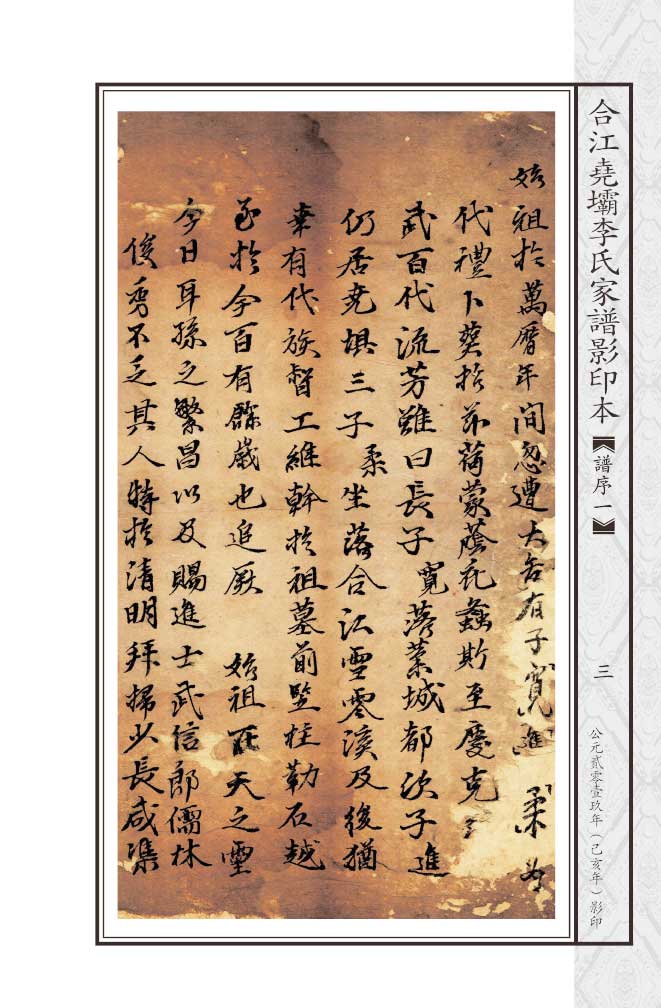 合江堯壩李氏家譜影印本
【譜序一】
三
公元貳零壹玖年（己亥年）影印
始祖於萬曆年間忽遭大劫有子寬進柔
代禮卜葬於茆蒙蔭充螽斯至慶克
武百代流芳雖曰長子寬落業城都次子進
仍居堯壩三子柔坐落合江雪零溪及後猶
幸有代族督工維幹於祖墓前竪柱勒石越
至於今百有餘歲也追厥始祖在天之靈
今日耳孫之繁昌以及賜進士武信郎儒林
俊秀不乏其人特於清明拜掃少長咸集